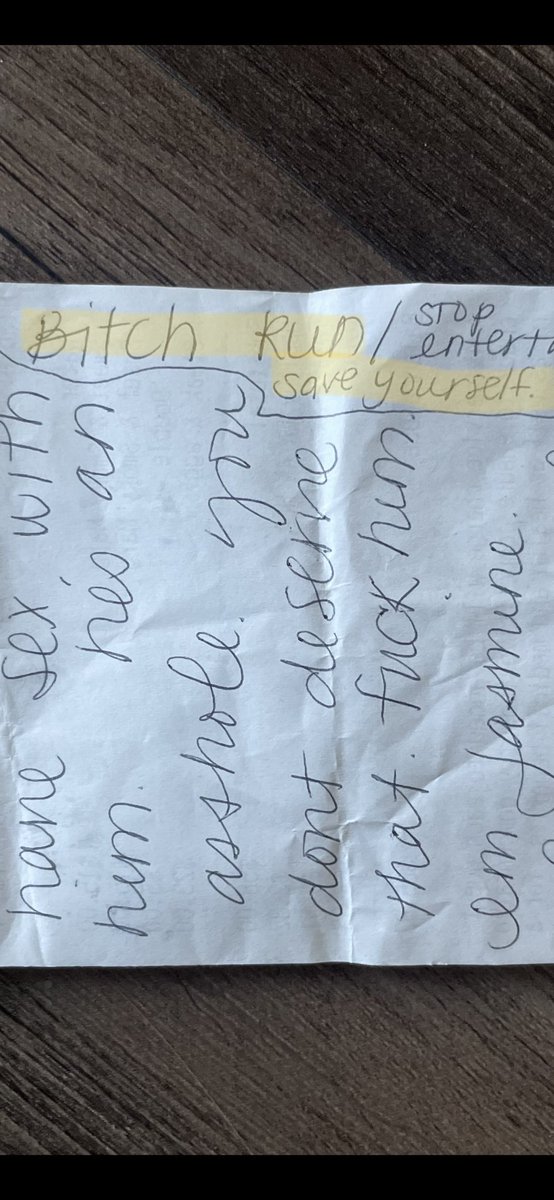 Bitch Run / STOP
enterta
save yourself.
have sex with
him. he's an
asshole. you
dont deserve
that. fuck him.
em Jasmine.